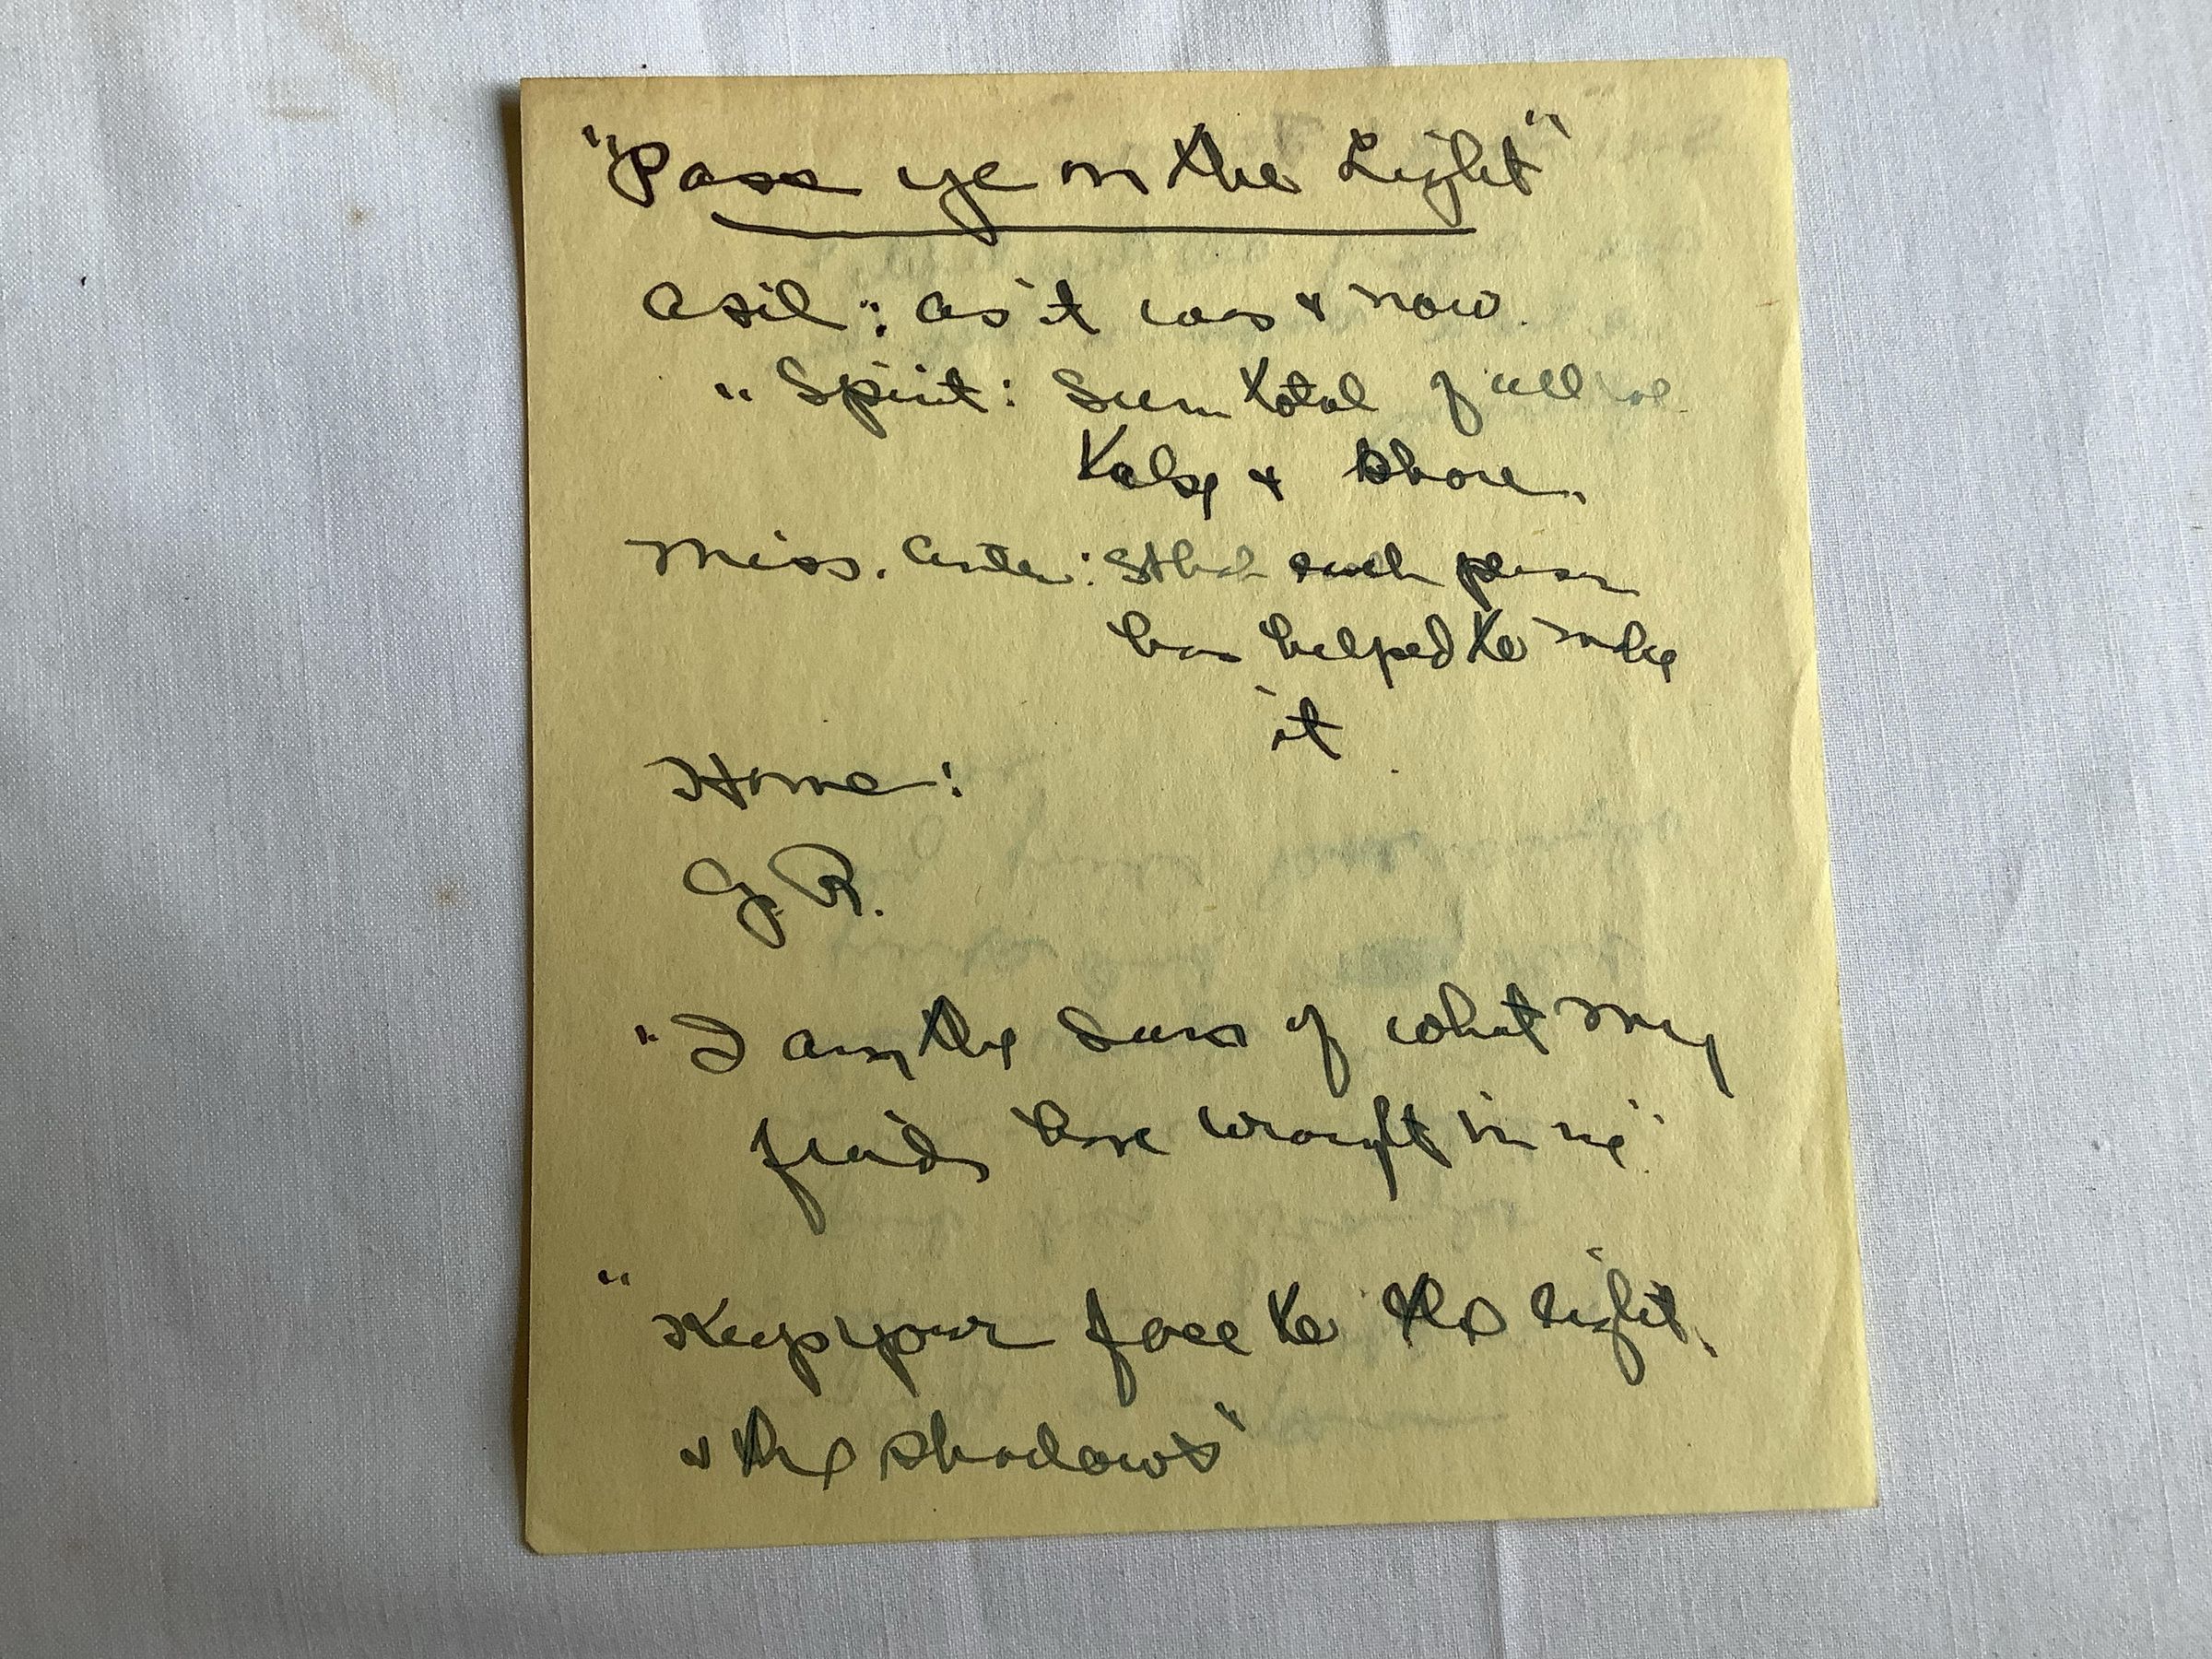 "Pass ye on the Light"
Asil: as it was & now.
" Spirit: Sum total of all we
take & share.
Miss. Ander: that each person
has helped to make
it.
Home:
G.R.
"I am the sum of what my
friends have wrought in me".
"Keep your face to the light,
& the shadows"